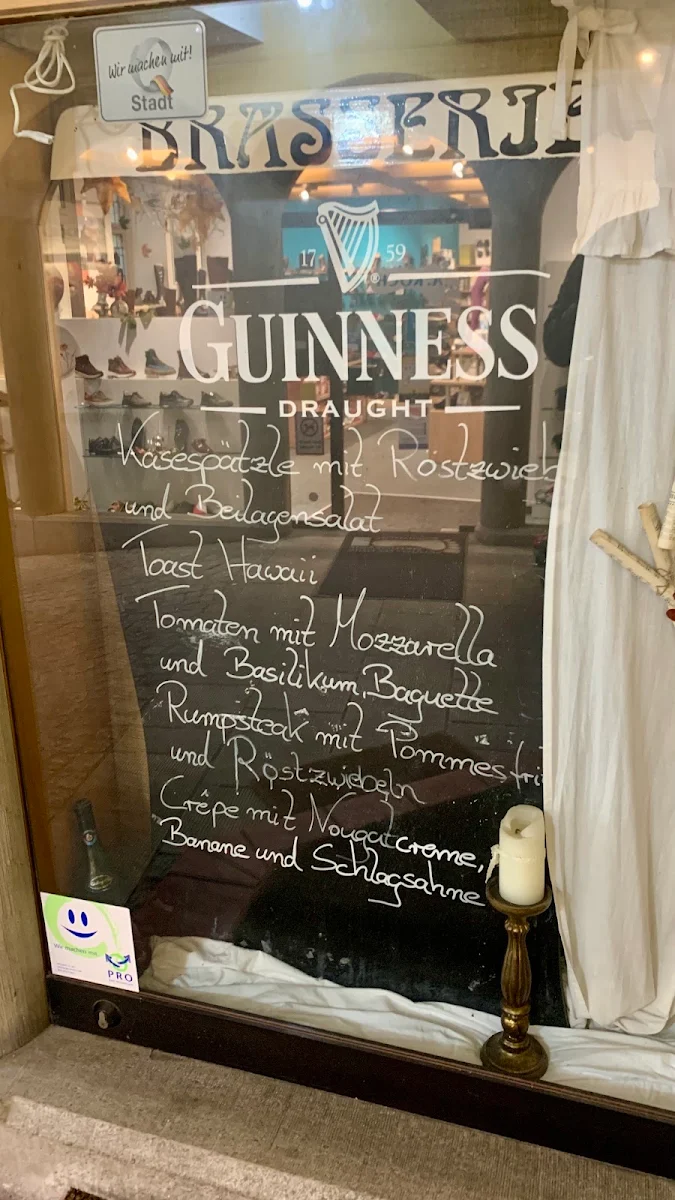 Wir machen mit!
Q
Stadt
BRASSERIE
17 59
GUINNESS
DRAUGHT
Käsespätzle mit Röstzwieb
und Beilagensalat
Toast Hawaii
Tomaten mit Mozzarella
und Basilikum, Baguette
Rumpsteak mit Pommes fri
und Röstzwiebeln
Crêpe mit Nougatcreme,
Banane und Schlagsahne
Wir machen mit
PRO